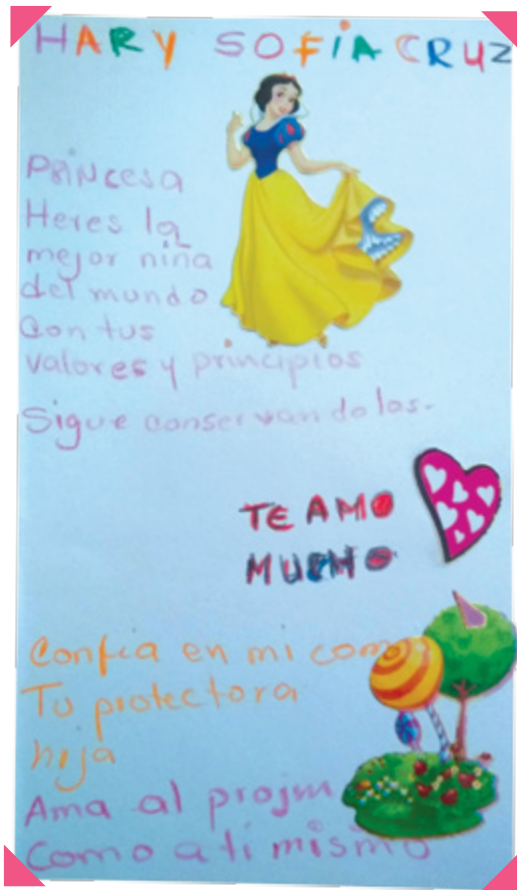 HARY SOFIA CRUZ
Princesa
Heres la
mejor niña
del mundo
Con tus
valores y principios
Sigue conservandolos.
TE AMO
MUCHO
Confia en mi como
Tu protectora
hija
Ama al projim
Como a ti mismo